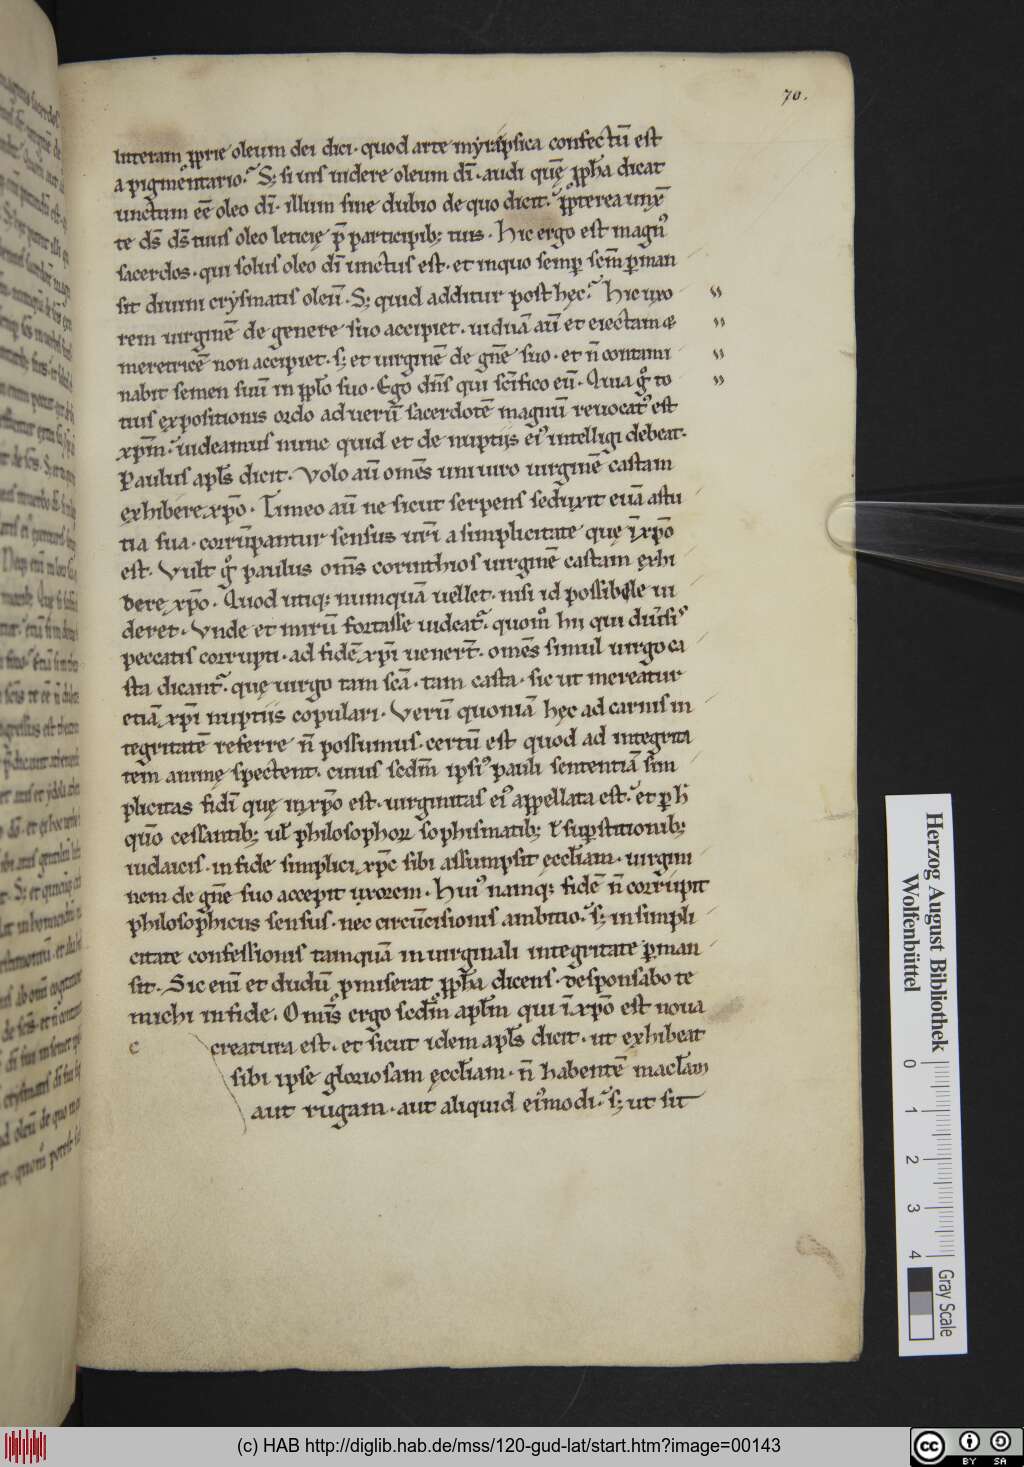 70.
litteram p̱prie oleum dei dici · quod arte myrapsica confectū est
a pigmentario. S; si uis uidere oleum dī · audi quę p̱pha dicat
unctum eē oleo dī · illum sine dubio de quo dicit. p̱pterea unx̄
te dś dś tuus oleo leticię p̄ participib; tuis · Hic ergo est magn᷒
sacerdos · qui solus oleo dī unctus est · et in quo semp̱ scm̄ p̱man
sit diuini crysmatis oleū · S; quid additur post hęc. Hic uxo
rem uirginē de genere suo accipiet · uiduā aū et eiectam &
meretricē non accipiet · s; et uirginē de gn̄e suo · et n̄ contami
nabit semen suū in pp̱lo suo · Ego dn̄s qui scīfico eū · Qua gͦ to
tius expositionis ordo ad uerū sacerdotē magnū reuocat᷒ est
xpm̄. uideamus nunc quid et de nuptiis ei᷒ intelligi debeat.
Paulus apls̄ dicit · Volo aū omēs uni uiro uirginē castam
exhibere xp̄o · Timeo aū ne sicut serpens seduxit euā astu
tia sua · corrūpantur sensus urī a simplicitate quę ī xp̄o
est · Vult gͦ paulus oms̄ corinthios uirginē castam exhi
dere xp̄o · Quod utiq; numquā uellet · nisi id possibile ui
deret · Vnde et mirū fortasse uideat᷒ · quom̊ hii qui diūsis
peccatis corrupti · ad fidē xp̄i uenert̄ · omēs simul uirgo ca
sta dicant᷒ · quę uirgo tam scā · tam casta · sic ut mereatur
etiā xp̄i nuptiis copulari · Verū quoniā hęc ad carnis in
tegritatē referre n̄ possumus · certū est quod ad integrita
tem animę spectent · cuius scdm̄ ipsi᷒ pauli sententiā sim
plicitas fidī quę in xp̄o est · uirginitas ei᷒ appellata est. et p̱ h̄
quo cessantib; ul̄ philosophoꝝ sophismatib; ł sup̱stitionib;
iudaicis · in fide simplici xp̄c sibi assumpsit ęcclīam · uirgini
nem de gn̄e suo accepit uxorem · Hui᷒ namq; fidē n̄ corrūpit
philosophicus sensus · nec circūcisionis ambitio. s; in simpli
citate confessionis tamquā in uirginali integritate p̱man
sit · Sic enī et dudū p̱miserat p̱pha dicens · desponsabo te
michi in fide · Omīs ergo scdm̄ aplm̄ qui ī xp̄o est noua
e creatura est · et sicut idem apls̄ dicit · ut exhibeat
sibi ipse gloriosam ęcclīam · n̄ habentē maclam
aut rugam · aut aliquid ei᷒modi. s; ut sit
Herzog August Bibliothek
Wolfenbüttel
0 1 2 3 4
Gray Scale
(c) HAB http://diglib.hab.de/mss/120-gud-lat/start.htm?image=00143
cc BY SA